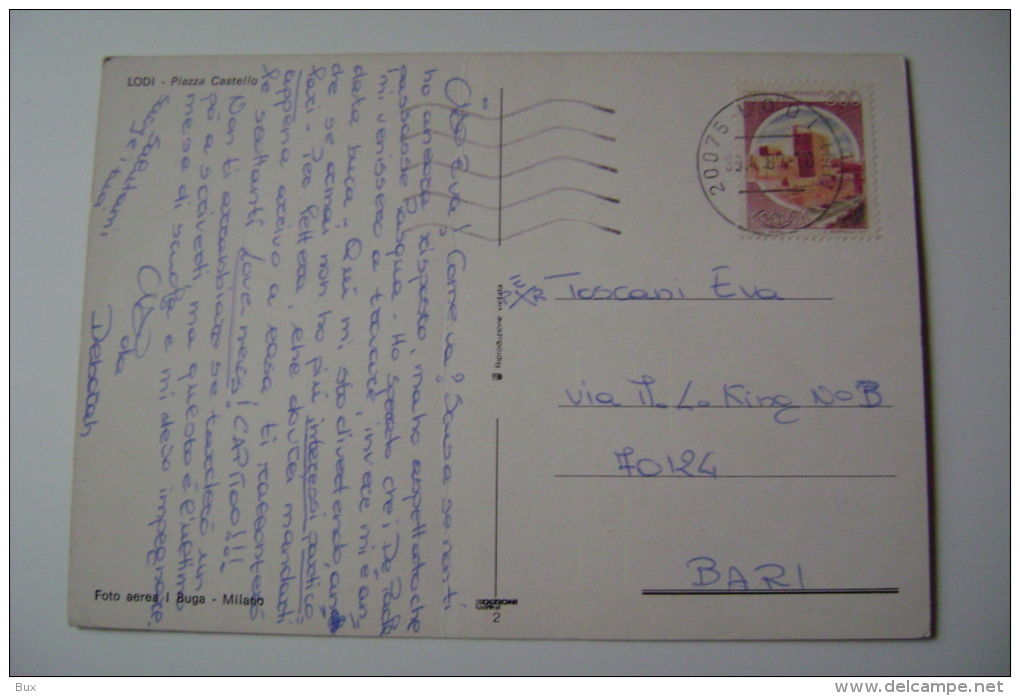 LODI - Piazza Castello
Ciao Eva! Come va? Scusa se non ti
ho ancora risposto, ma ho aspettato che
passasse Pasqua - Ho sperato che i De Paola
mi venissero a trovare, invece mi è an
data buca - Qui mi sto diverte​ndo, anche
che se ormai non ho più interessi partico
lari - Per lettera, che dovrei mandarti
appena arrivo a casa ti racconterò
le saltanti Love-news! CAPITOO!!!
Non ti arrabbiare se tarderò un
pò a scriverti, ma questo è l'ultimo
mese di scuola e mi devo impegnare.
Ciao da
Deborah
Foto aerea I Buga - Milano
Riproduzione vietata
EDIZIONI
2
300
20075 LODI
Toscani Eva
via M. L. King No B
70124
BARI
Bux
www.delcampe.net